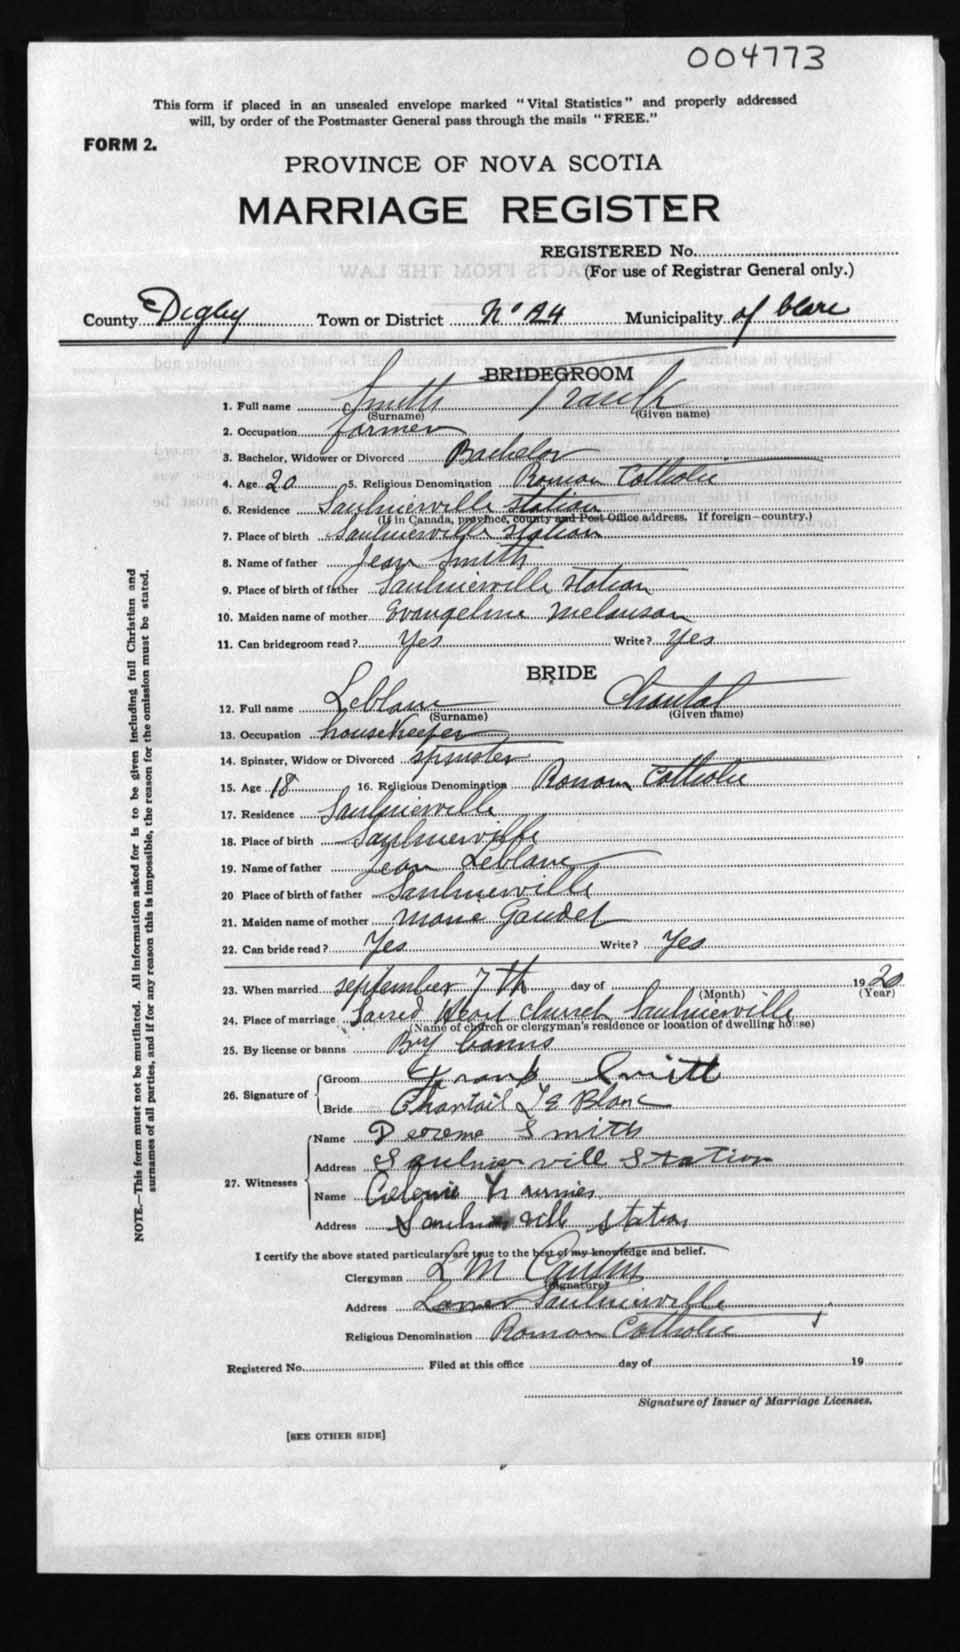 004773
This form if placed in an unsealed envelope marked "Vital Statistics" and properly addressed
will, by order of the Postmaster General pass through the mails "FREE."
FORM 2.
PROVINCE OF NOVA SCOTIA
MARRIAGE REGISTER
REGISTERED No.
(For use of Registrar General only.)
County Digby Town or District No 24 Municipality of Clare
BRIDEGROOM
1. Full name Smith Frank
(Surname) (Given name)
2. Occupation farmer
3. Bachelor, Widower or Divorced Bachelor
4. Age 20 5. Religious Denomination Roman Catholic
6. Residence Saulnierville station
(If in Canada, province, county and Post Office address. If foreign—country.)
7. Place of birth Saulnierville station
8. Name of father Jean Smith
9. Place of birth of father Saulnierville station
10. Maiden name of mother Evangeline Melanson
11. Can bridegroom read? Yes Write? Yes
BRIDE
12. Full name Leblanc Chantal
(Surname) (Given name)
13. Occupation housekeeper
14. Spinster, Widow or Divorced spinster
15. Age 18 16. Religious Denomination Roman Catholic
17. Residence Saulnierville
18. Place of birth Saulnierville
19. Name of father Jean Leblanc
20 Place of birth of father Saulnierville
21. Maiden name of mother Marie Gaudet
22. Can bride read? Yes Write? Yes
23. When married september 7th day of 1920
(Month) (Year)
24. Place of marriage Sacred Heart Church Saulnierville
(Name of church or clergyman's residence or location of dwelling house)
25. By license or banns By banns
26. Signature of
Groom Frank Smith
Bride Chantail Le Blanc
27. Witnesses
Name Smith
Address Saulnier vill Station
Name
Address Saulnier vill station
I certify the above stated particulars are true to the best of my knowledge and belief.
Clergyman L M
(Signature)
Address Lower Saulnierville
Religious Denomination Roman Catholic
Registered No. Filed at this office day of 19
Signature of Issuer of Marriage Licenses.
[SEE OTHER SIDE]
NOTE.—This form must not be mutilated. All information asked for is to be given including full Christian and
surnames of all parties, and if for any reason this is impossible, the reason for the omission must be stated.